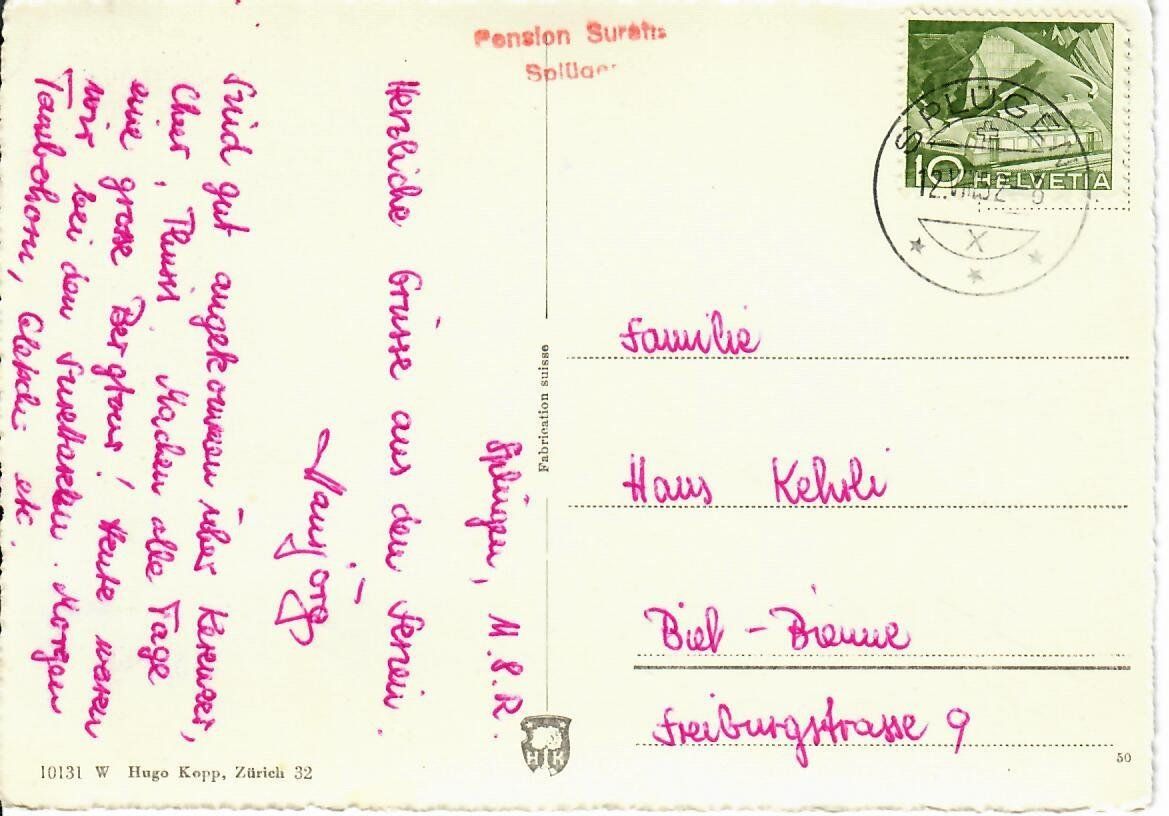 Pension Suretta
Splügen
SPLÜGEN
12.VIII.52 - 8
X
10 HELVETIA
Splügen, 11. 8. 52
Herzliche Grüsse aus den Ferien.
Hansjörg
Sind gut angekommen über Kerenzer,
Chur, Thusis. Machen alle Tage
eine grosse Bergtour! Heute waren
wir bei den Morgen
Tambohorn, etc.
Fabrication suisse
Familie
Hans Kehrli
Biel - Bienne
Freiburgstrasse 9
H K
50
10131 W Hugo Kopp, Zürich 32